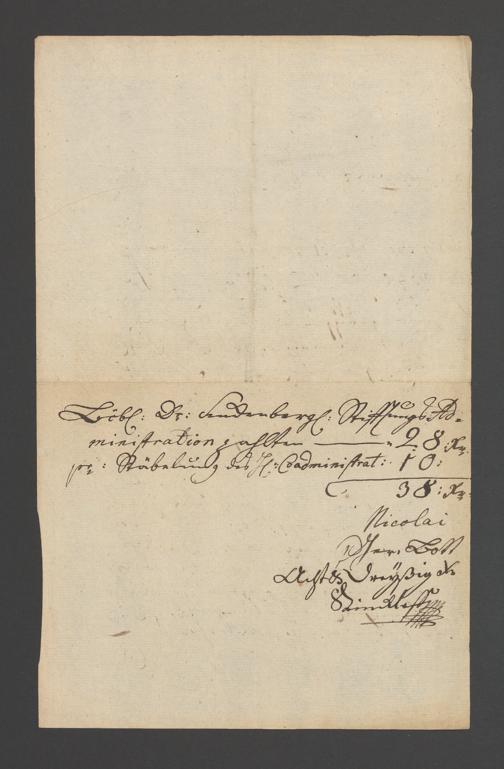 Löbl: Dr: Senckenbergl: Stifftungs Ad-
ministration zahlten — " 28 Xr.
pr: Stäbelung des H: Coadministrat: 10:
38: Xr.
Nicolai
Acht & Dreyßig Xr